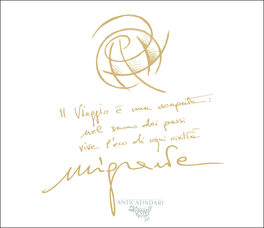 Il Viaggio è una scoperta:
nel suono dei passi
vive l'eco di ogni civiltà
migrante
ANTICA TINDARI